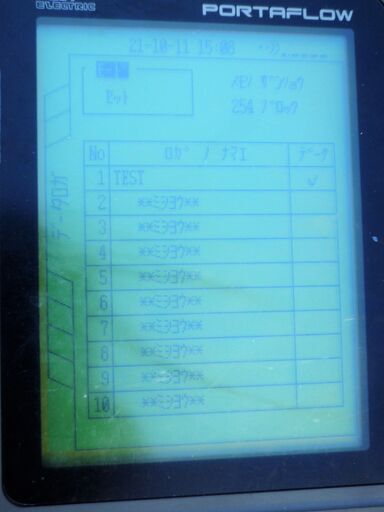 ELECTRIC
PORTAFLOW
21-10-11 15:08
モード
セット
メモリ ザンリョウ
254 ブロック
データロガ
No ロガ ノ ナマエ データ
1 TEST ✓
2 **ミシヨウ**
3 **ミシヨウ**
4 **ミシヨウ**
5 **ミシヨウ**
6 **ミシヨウ**
7 **ミシヨウ**
8 **ミシヨウ**
9 **ミシヨウ**
10 **ミシヨウ**